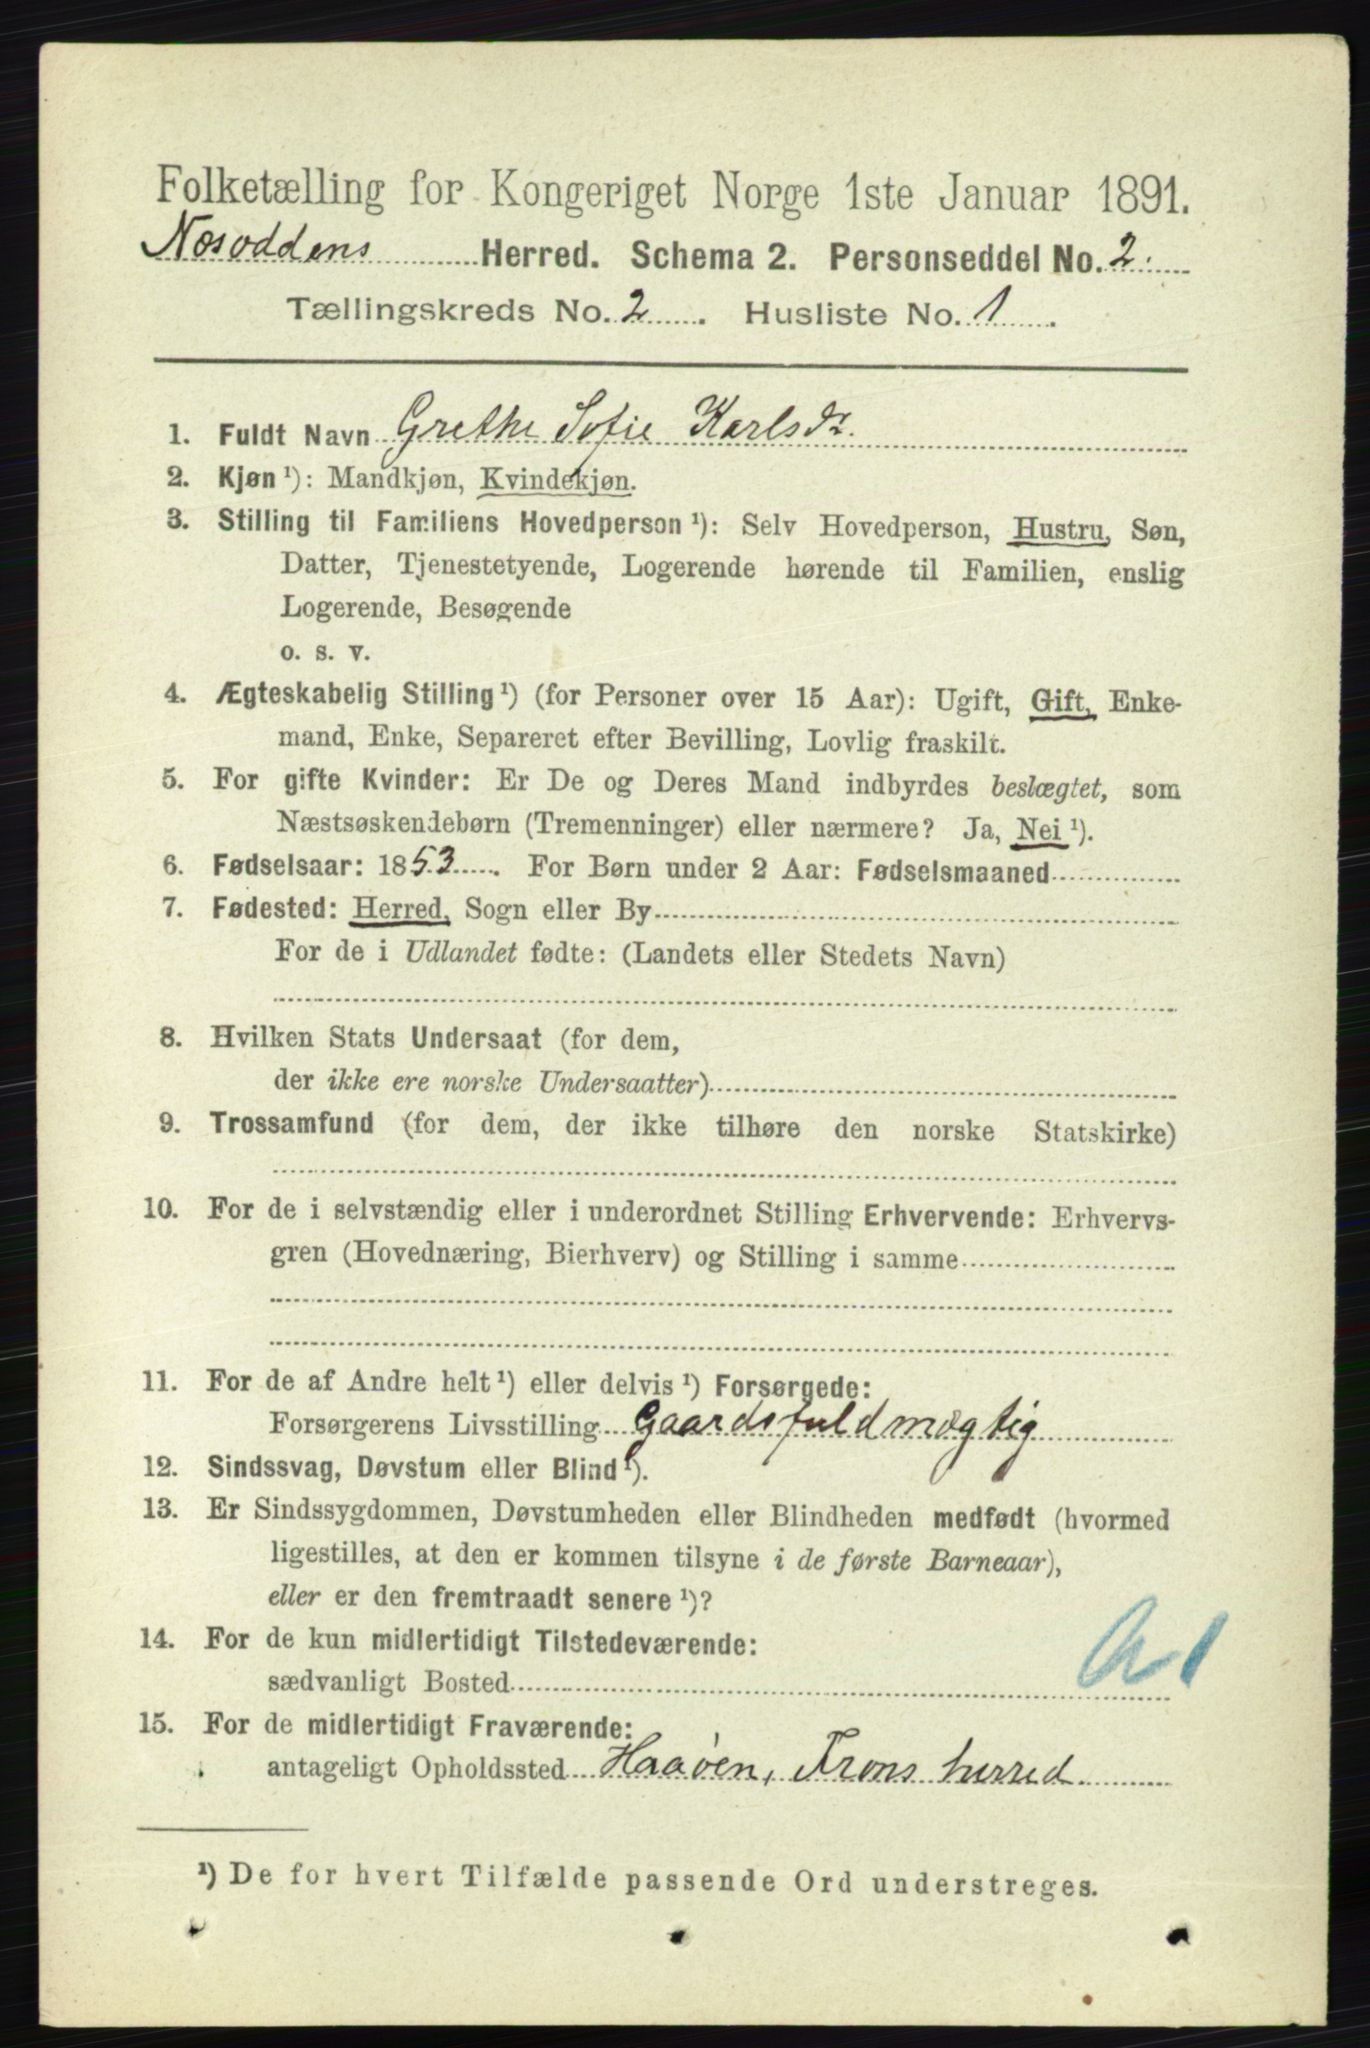 Folketælling for Kongeriget Norge 1ste Januar 1891.
Nesoddens Herred. Schema 2. Personseddel No. 2.
Tællingskreds No. 2. Husliste No. 1.
1. Fuldt Navn Grethe Sofie Karlsdr.
2. Kjøn ¹): Mandkjøn, Kvindekjøn.
3. Stilling til Familiens Hovedperson ¹): Selv Hovedperson, Hustru, Søn,
Datter, Tjenestetyende, Logerende hørende til Familien, enslig
Logerende, Besøgende
o. s. v.
4. Ægteskabelig Stilling ¹) (for Personer over 15 Aar): Ugift, Gift, Enke-
mand, Enke, Separeret efter Bevilling, Lovlig fraskilt.
5. For gifte Kvinder: Er De og Deres Mand indbyrdes beslægtet, som
Næstsøskendebørn (Tremenninger) eller nærmere? Ja, Nei ¹).
6. Fødselsaar: 1853. For Børn under 2 Aar: Fødselsmaaned
7. Fødested: Herred, Sogn eller By
For de i Udlandet fødte: (Landets eller Stedets Navn)
8. Hvilken Stats Undersaat (for dem,
der ikke ere norske Undersaatter)
9. Trossamfund (for dem, der ikke tilhøre den norske Statskirke)
10. For de i selvstændig eller i underordnet Stilling Erhvervende: Erhvervs-
gren (Hovednæring, Bierhverv) og Stilling i samme
11. For de af Andre helt ¹) eller delvis ¹) Forsørgede:
Forsørgerens Livsstilling Gaardsfuldmægtig
12. Sindssvag, Døvstum eller Blind ¹).
13. Er Sindssygdommen, Døvstumheden eller Blindheden medfødt (hvormed
ligestilles, at den er kommen tilsyne i de første Barneaar),
eller er den fremtraadt senere ¹)?
14. For de kun midlertidigt Tilstedeværende:
sædvanligt Bosted
15. For de midlertidigt Fraværende:
antageligt Opholdssted Haaøen, Frons herred
¹) De for hvert Tilfælde passende Ord understreges.